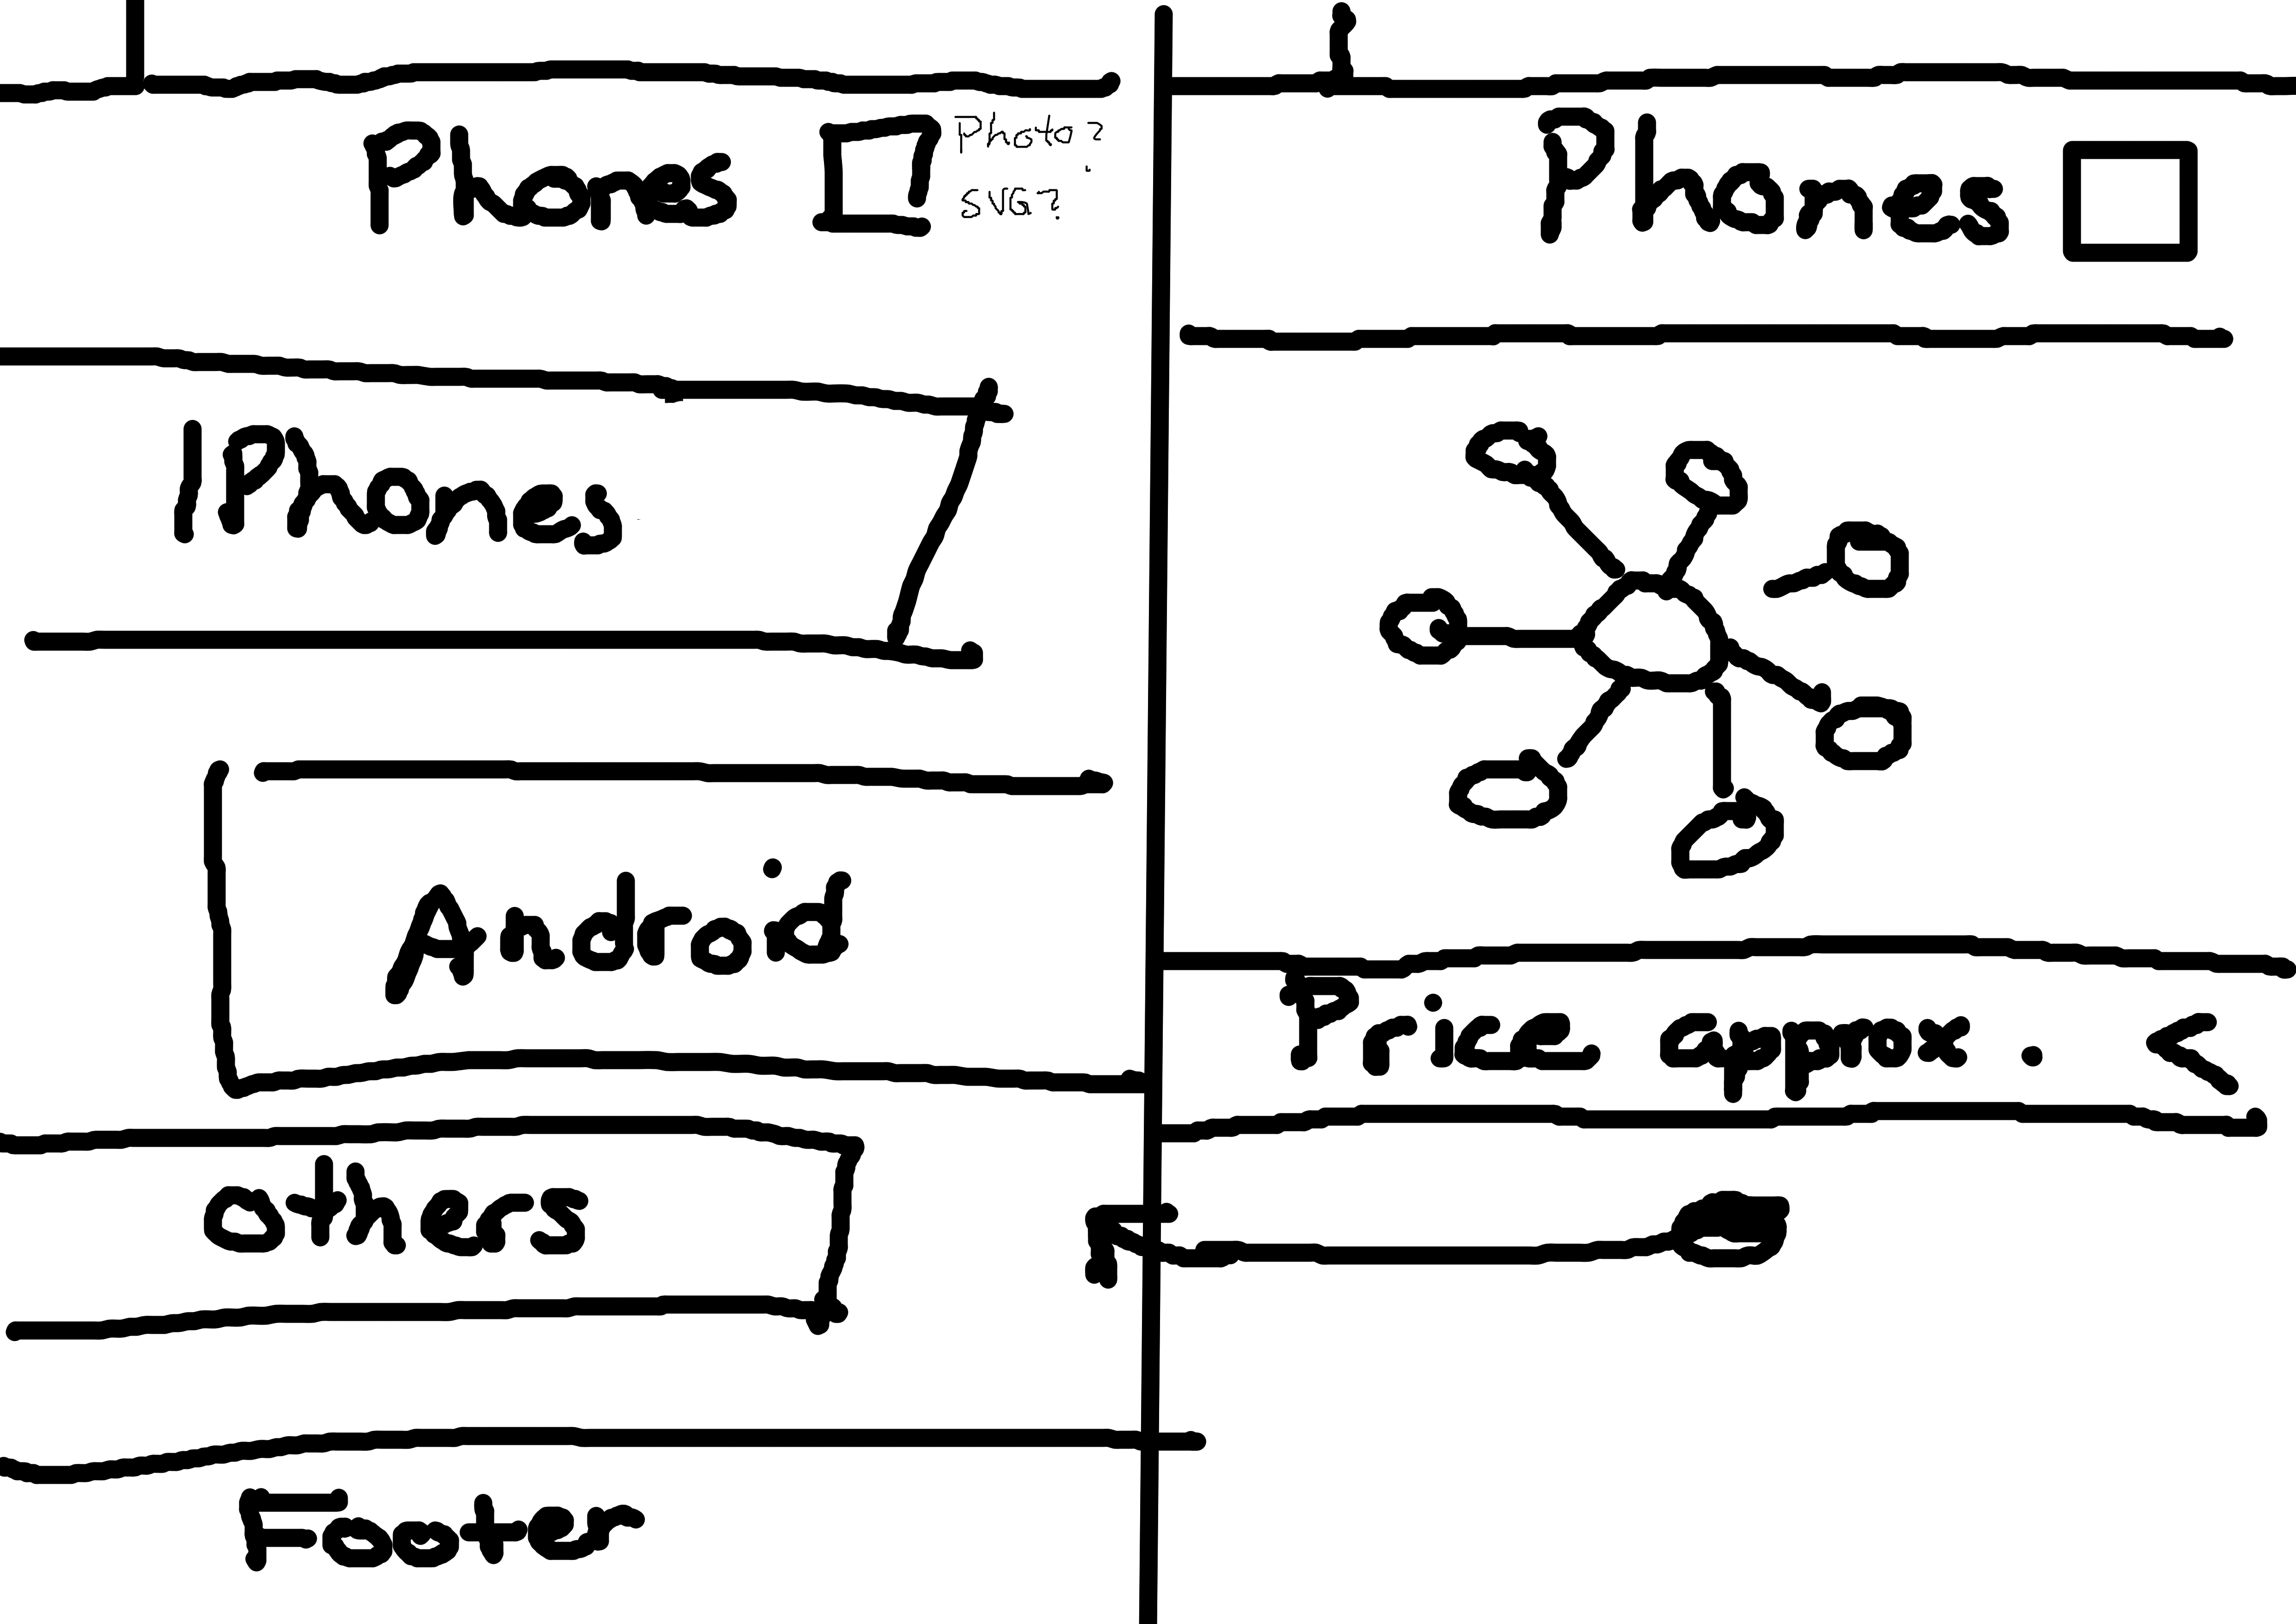 Phones
Photo?
SVG?
IPhones
Android
others
Footer
Phones
Price approx. <